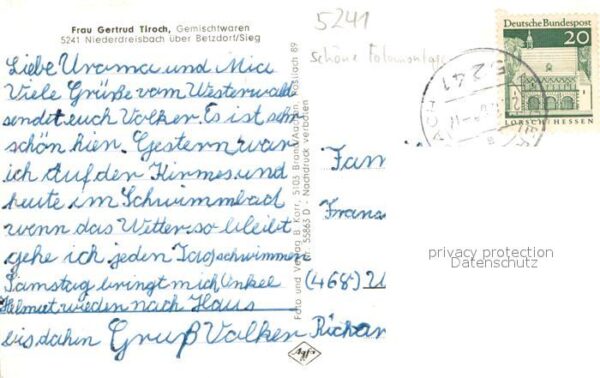 Frau Gertrud Tiroch, Gemischtwaren
5241 Niederdreisbach über Betzdorf/Sieg
5241
schöne Fotomontage
Liebe Urama und Mia
Viele Grüße vom Westerwald
sendet euch Volker. Es ist sehr
schön hier. Gestern war
ich auf der Kirmes und
heute im Schwimmbad
wenn das Wetter so bleibt
gehe ich jeden Tag schwimmen
Samstag bringt mich Onkel
Helmut wieder nach Haus
bis dahin Gruß Volker
Foto und Verlag B. Korr, 5103 Brand/Aachen, Postfach 89
Nr. 55863 D - Nachdruck verboten
Deutsche Bundespost
20
LORSCH/HESSEN
5241
Fam
Frans
(468) U
Richar
privacy protection
Datenschutz